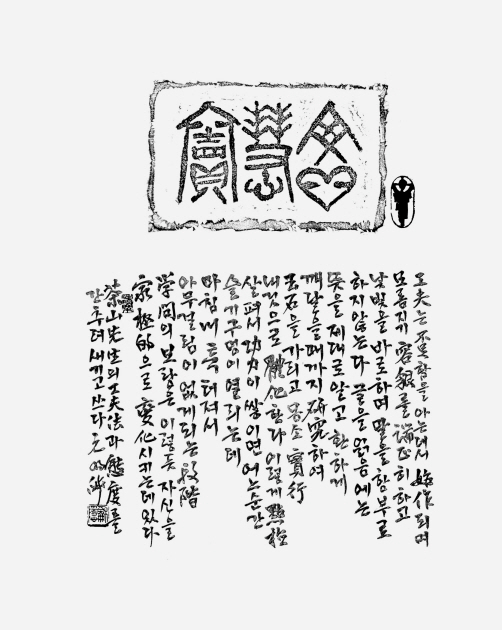 慧寶
工夫는 不足함을 아는데서 始作되며
모름지기 容貌를 端正히 하고
낯빛을 바로하며 말을 함부로
하지 않는다 글을 읽음에는
뜻을 제대로 알고 환하게
깨달을때까지 硏究하여
玉石을 가리고 몸소 實行
내것으로 體化한다 이렇게 點檢
살펴서 功力이 쌓이면 어느순간
슬기구멍이 열리는데
마침내 툭 터져서
아무걸림이 없게되는 段階
學問의 보람은 이렇듯 자신을
極的으로 變化시키는데 있다
茶山先生의 工夫法과 態度를
간추려 새기고 쓰다